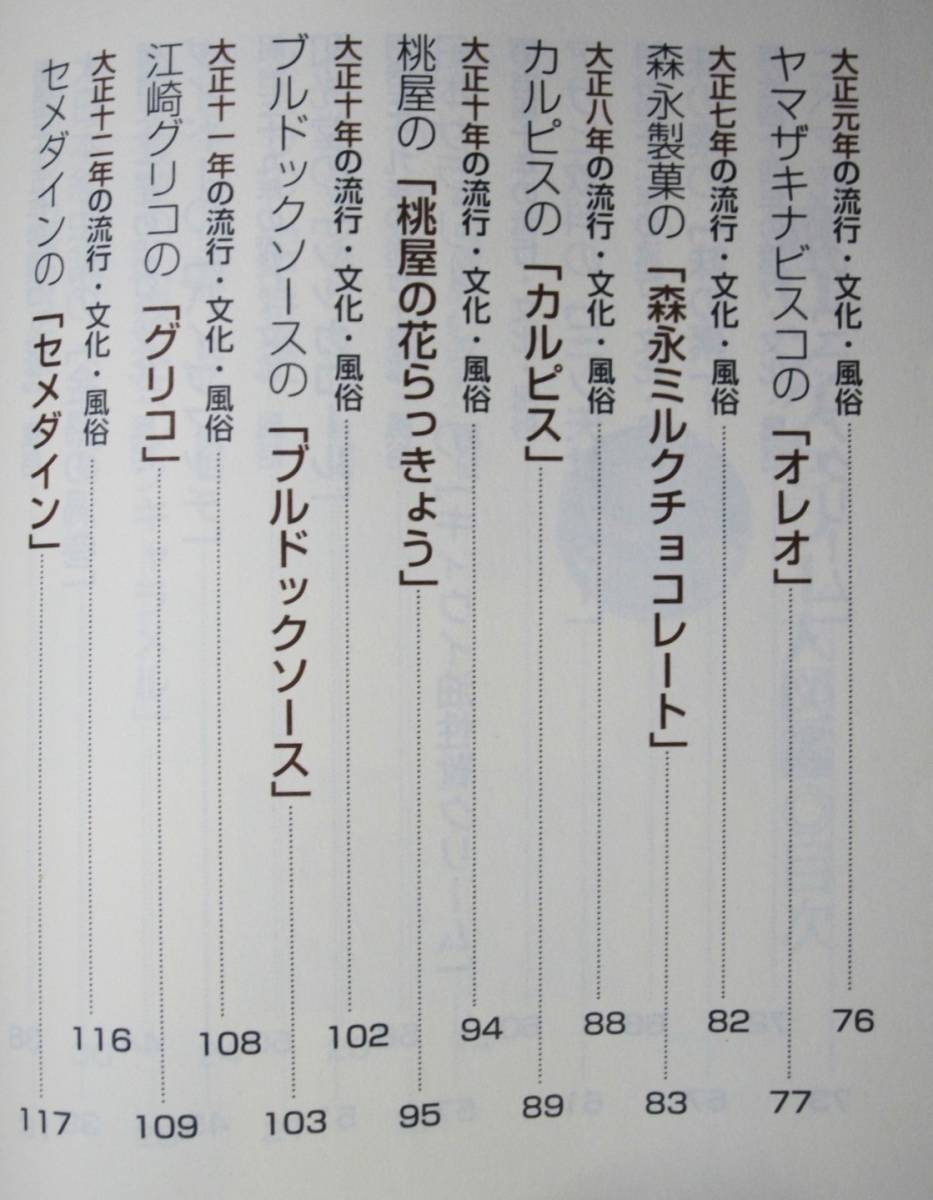 大正元年の流行・文化・風俗 76
ヤマザキナビスコの「オレオ」 77
大正七年の流行・文化・風俗 82
森永製菓の「森永ミルクチョコレート」 83
大正八年の流行・文化・風俗 88
カルピスの「カルピス」 89
大正十年の流行・文化・風俗 94
桃屋の「桃屋の花らっきょう」 95
大正十年の流行・文化・風俗 102
ブルドックソースの「ブルドックソース」 103
大正十一年の流行・文化・風俗 108
江崎グリコの「グリコ」 109
大正十二年の流行・文化・風俗 116
セメダインの「セメダイン」 117